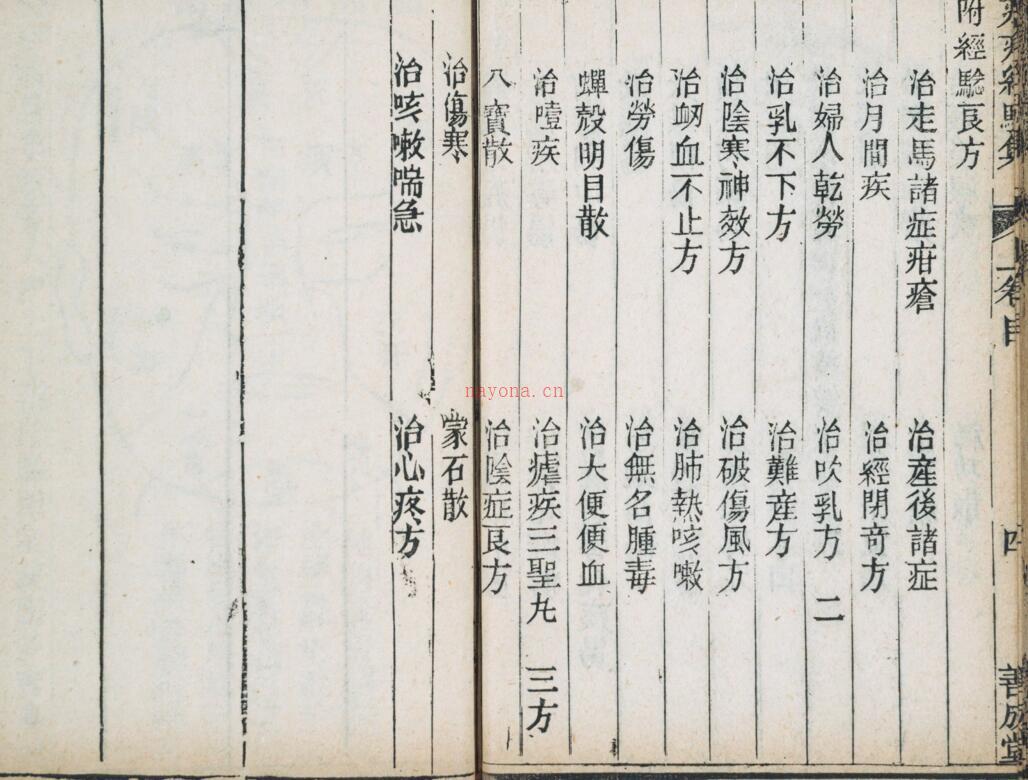 附經驗良方
治走馬諸症疳瘡 治產後諸症
治月間疾 治經閉竒方
治婦人乾勞 治吹乳方 二
治乳不下方 治難産方
治陰寒神效方 治破傷風方
治衂血不止方 治肺熱咳嗽
治勞傷 治無名腫毒
蟬殼明目散 治大便便血
治噎疾 治瘧疾三聖丸 三方
八寳散 治陰症良方
治傷寒 蒙石散
治咳嗽喘急 治心疼方
卷目
四
善成堂
nayona.cn